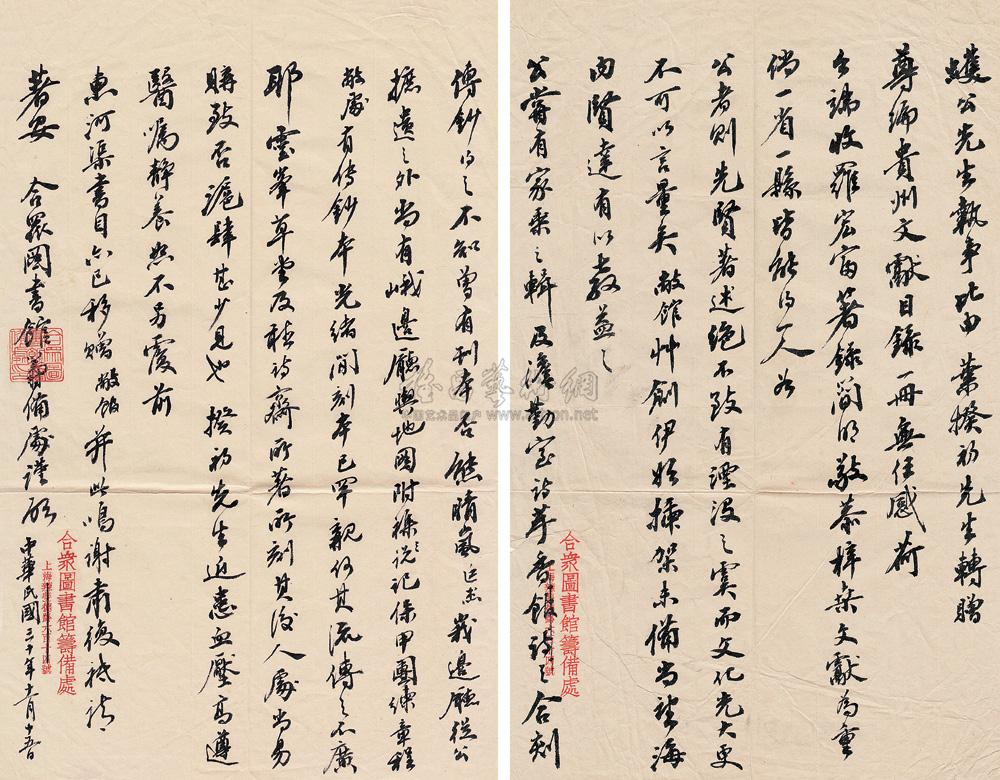 蠖公先生執事比由 葉揆初先生轉贈
尊編貴州文獻目錄一冊無任感荷
台端收羅宏富著錄簡明敬恭梓桑文獻為重
倘一省一縣皆能得人如
公者則先賢著述絕不致有湮沒之虞而文化光大更
不可以言量矣敝館艸創伊始插架未備尚望海
內賢達有以教益之
公嘗有家乘之輯及澹勤室詩茅香館詩之合刻
合衆圖書館籌備處
傳鈔得之不知曾有刊本否熊晴嵐廷杰峩邊廳從公
摭遺之外尚有峨邊廳輿地圖附襍說記保甲團練章程
敝處有传鈔本光緒間刻本已罕覯何其流傳之不廣
耶雲峯草堂及詩齋所著所刻其後人處尚易
購致否滬肆甚少見也 揆初先生近患血壓高遵
醫囑靜養恕不另覆前
惠河渠書目亦已移贈敝館并此鳴謝肅復祗頌
著安 合眾圖書館籌備處謹啟 中華民國三十年月十五日
合衆圖書館籌備處